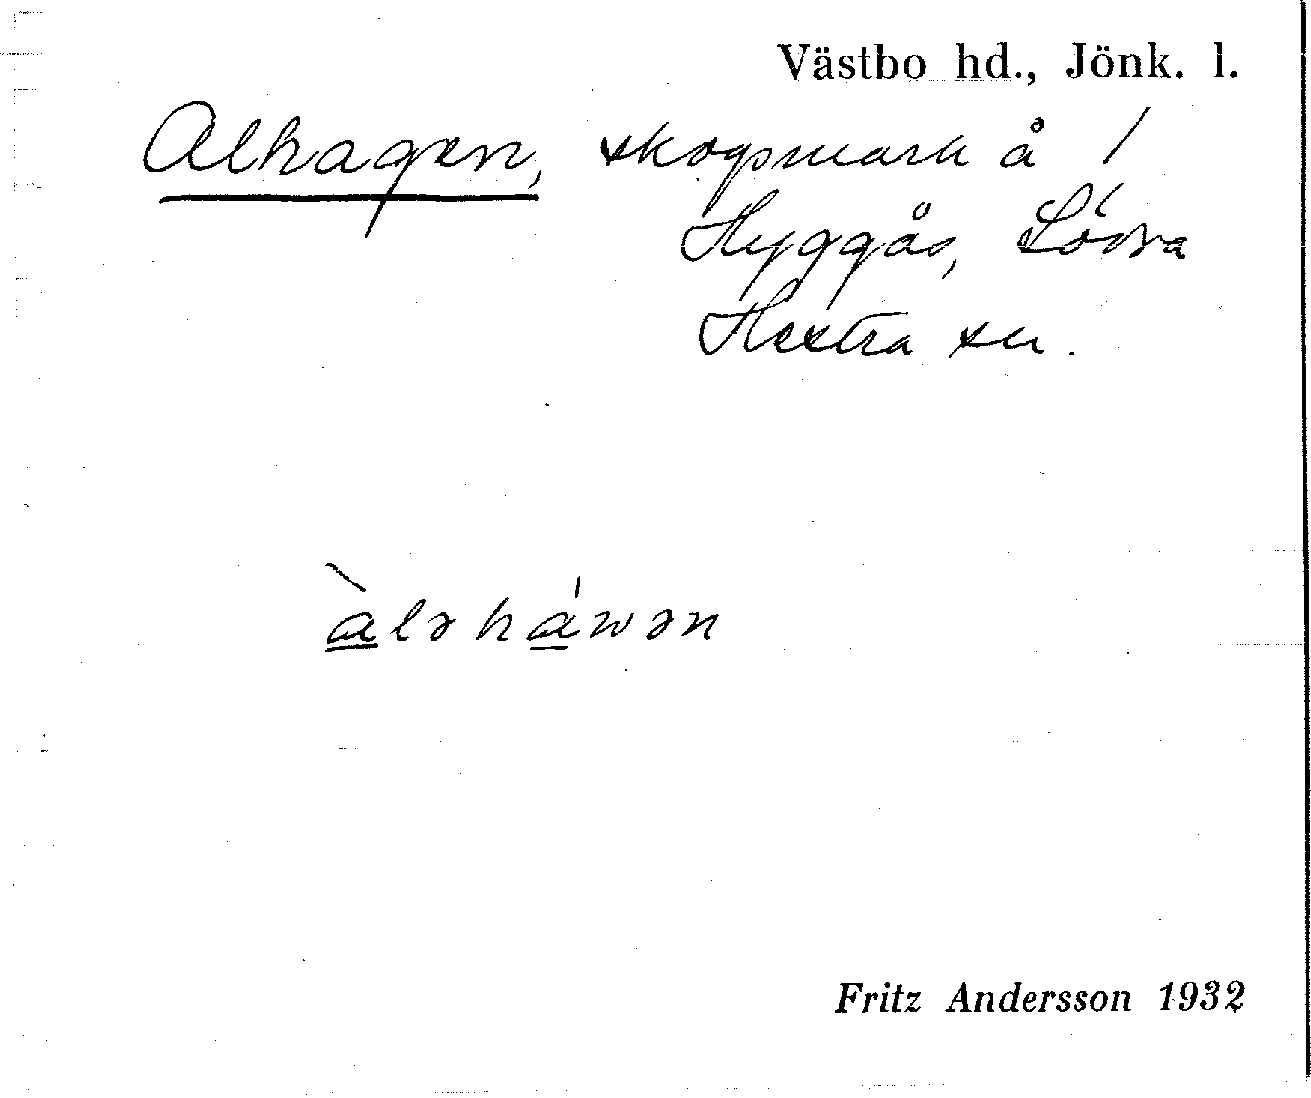 Västbo hd., Jönk. l.
Alhagen, skogsmark å /
Hyggås, Södra
Hestra sn.
à̲lǝ há̲wǝn
Fritz Andersson 1932